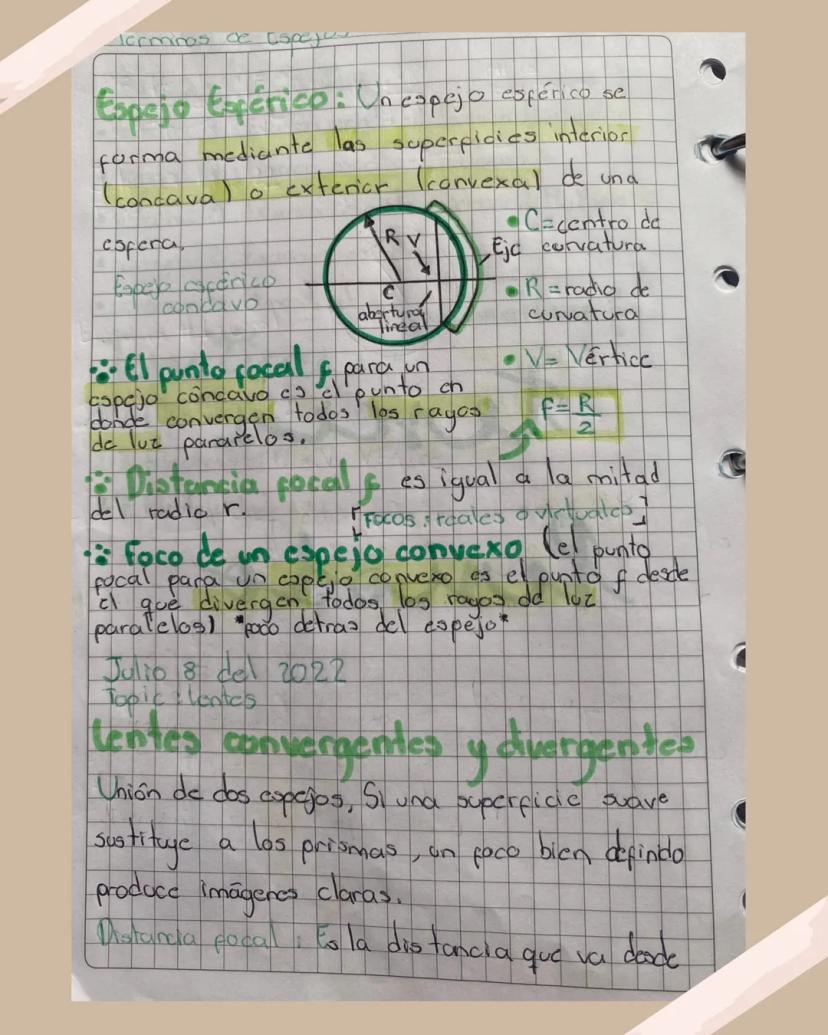 Términos de Espejos
Espejo Esférico: Un espejo esférico se
forma mediante las superficies interior
(concava) o exterior (convexa) de una
esfera.
Espejo esférico
concavo
R V
C
abertura
lineal
Eje
• C=centro de
curvatura
• R=radio de
curvatura
• V=Vértice
El punto focal f para un
espejo cóncavo es el punto en
donde convergen todos los rayos
de luz pararelos.
F=R
2
Distancia focal f es igual a la mitad
del radio r.
[Focos: reales o virtuales]
Foco de un espejo convexo (el punto
focal para un espejo convexo es el punto f desde
el que divergen todos los rayos de luz
paralelos) *foco detras del espejo*
Julio 8 del 2022
Topic: lentes
Lentes convergentes y divergentes
Unión de dos espejos, Si una superficie suave
sustituye a los prismas, un foco bien defindo
produce imágenes claras.
Distancia focal: Es la distancia que va desde